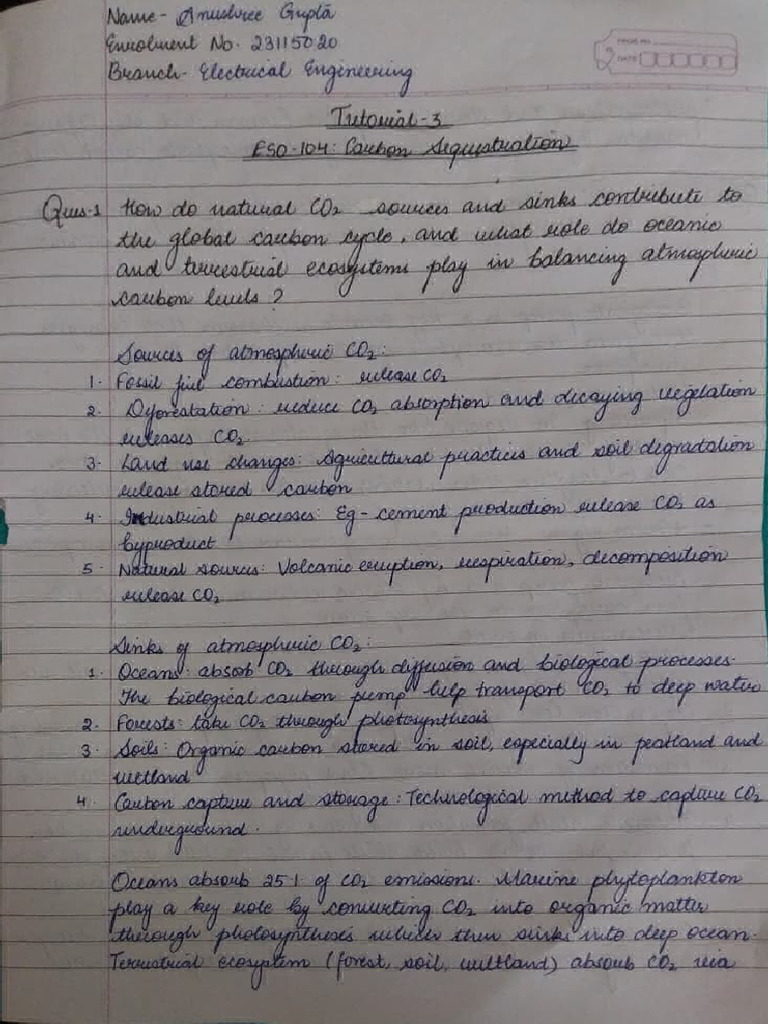 Name- Anushree Gupta
Enrolment No. 23115020
Branch- Electrical Engineering
PAGE NO.
DATE
Tutorial-3
ESO-104: Carbon Sequestration
Ques-1 How do natural CO₂ sources and sinks contribute to
the global carbon cycle, and what role do oceanic
and terrestrial ecosystems play in balancing atmospheric
carbon levels ?
Sources of atmospheric CO₂:
1. Fossil fuel combustion: release CO₂
2. Deforestation: reduce CO₂ absorption and decaying vegetation
releases CO₂
3. Land use changes: Agricultural practices and soil degradation
release stored carbon
4. Industrial processes: Eg- cement production release CO₂ as
byproduct
5. Natural sources: Volcanic eruption, respiration, decomposition
release CO₂
Sinks of atmospheric CO₂:
1. Oceans: absorb CO₂ through diffusion and biological processes.
The biological carbon pump help transport CO₂ to deep water
2. Forests: take CO₂ through photosynthesis
3. Soils: Organic carbon stored in soil, especially in peatland and
wetland
4. Carbon capture and storage: Technological method to capture CO₂
underground.
Oceans absorb 25% of CO₂ emissions. Marine phytoplankton
play a key role by converting CO₂ into organic matter
through photosynthesis which then sinks into deep ocean.
Terrestrial ecosystem (forest, soil, wetland) absorb CO₂ via